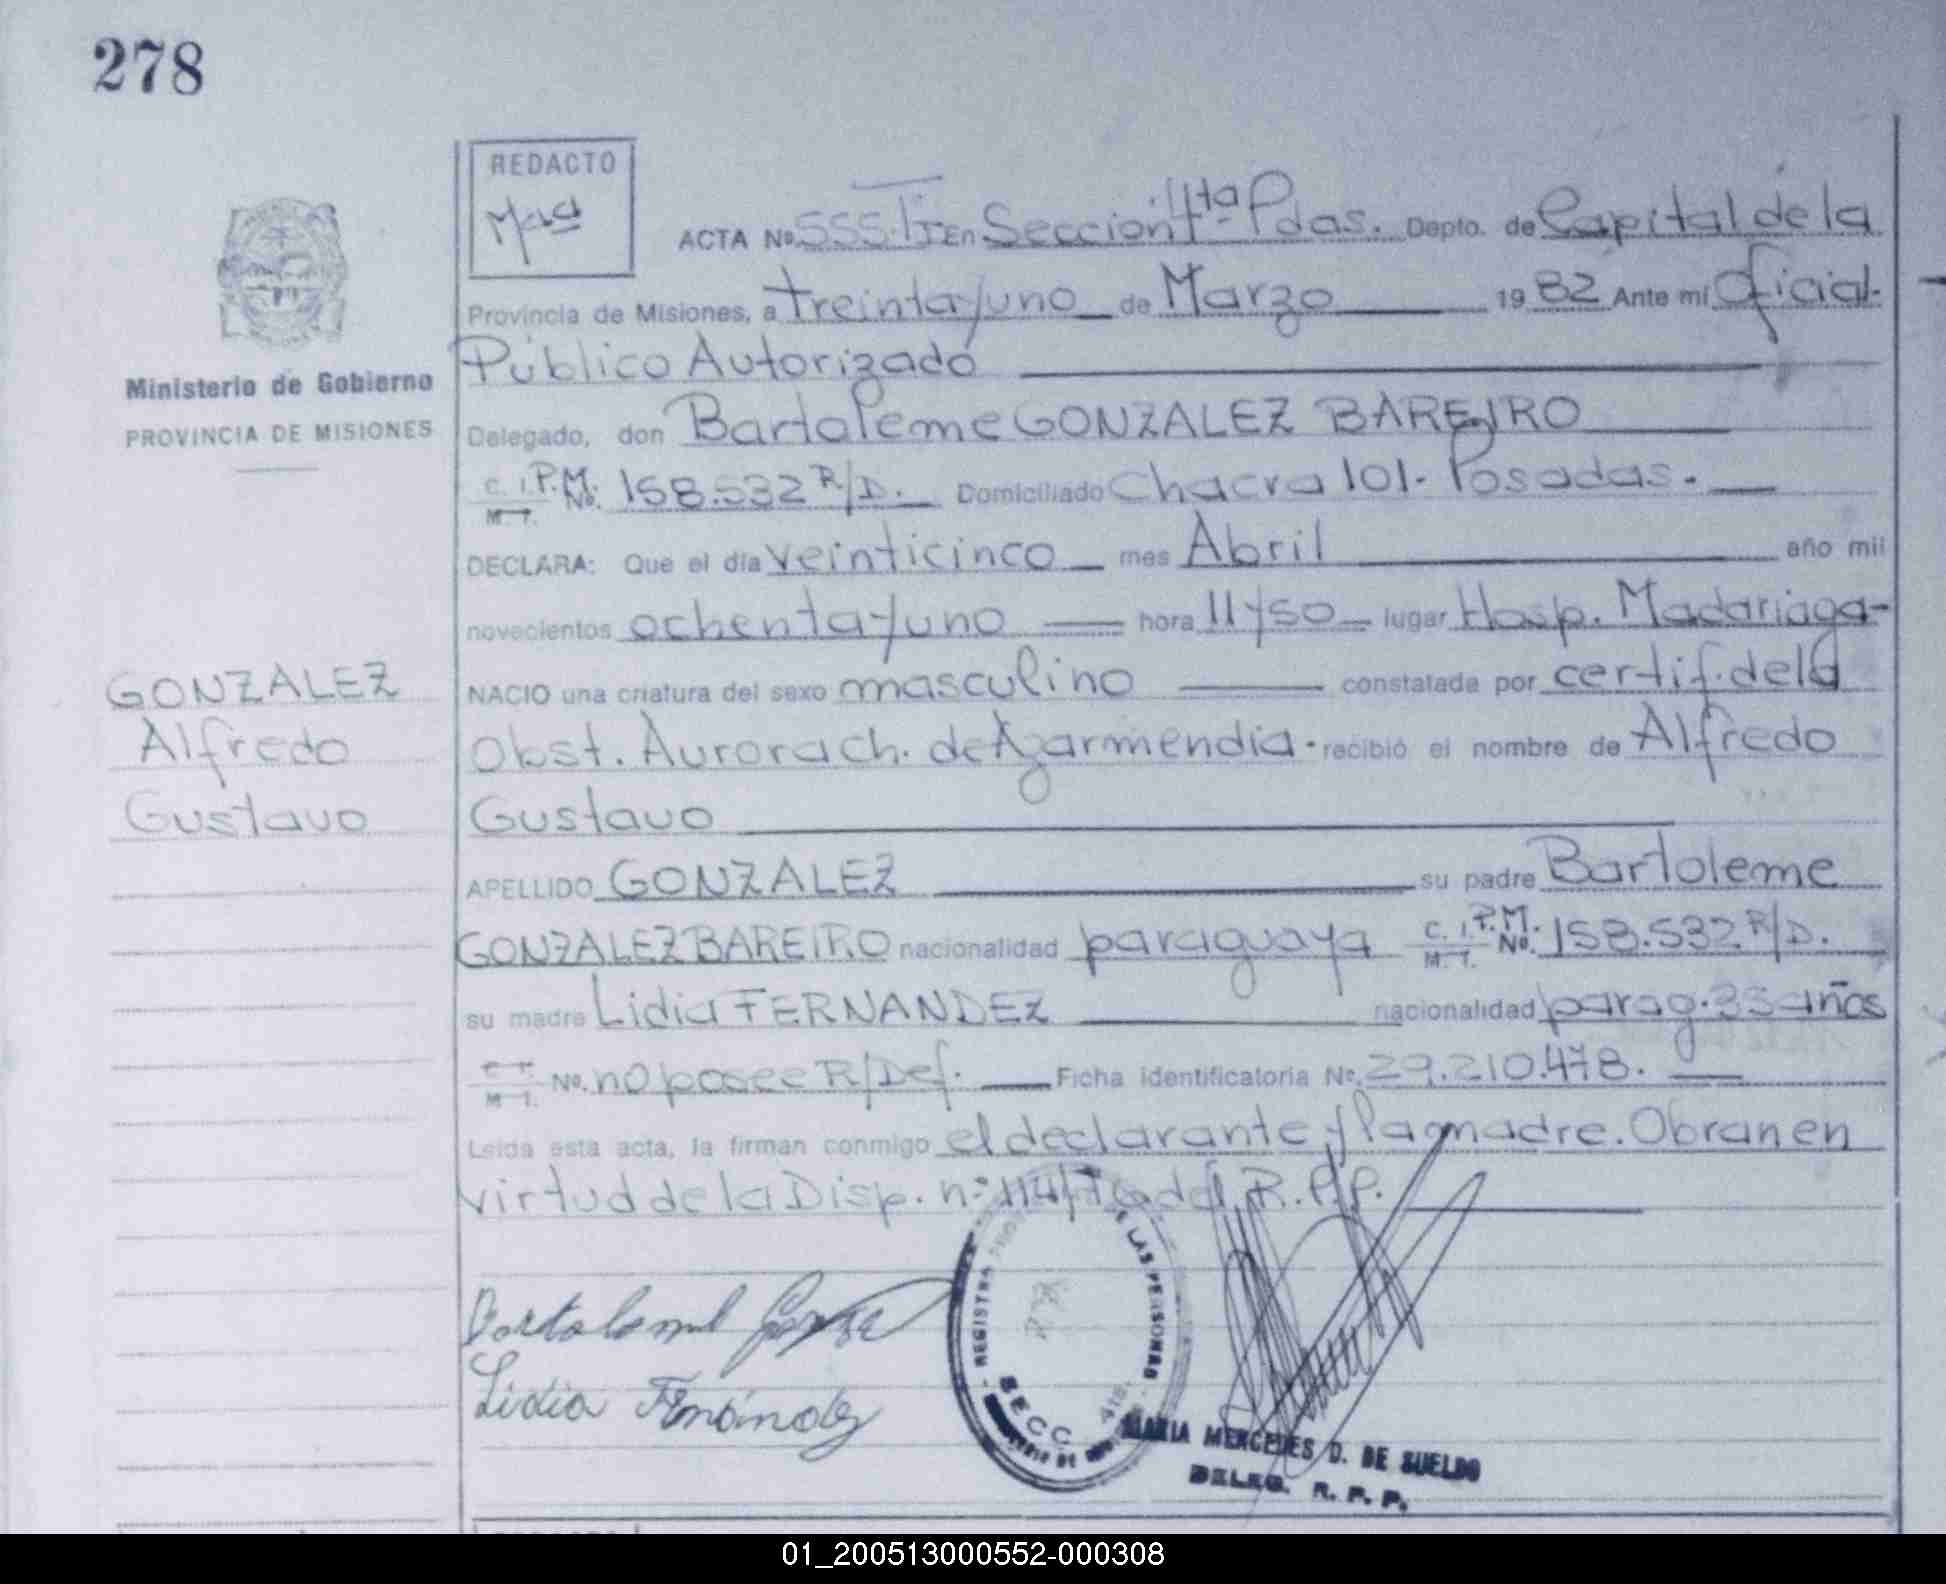 278
REDACTO
ACTA No. 555 TI En Sección 4ta Pdas. Depto. de Capital de la
Provincia de Misiones, a treinta y uno de Marzo 1982 Ante mí Oficial
Público Autorizado
Ministerio de Gobierno
PROVINCIA DE MISIONES
Delegado, don Bartoleme GONZALEZ BAREIRO
C. I. P.M. No. 158.532 R/D. Domiciliado Chacra 101 - Posadas.
M. I.
DECLARA: Que el día veinticinco mes Abril año mil
novecientos ochenta y uno hora 11 y 50 lugar Hosp. Madariaga-
GONZALEZ
Alfredo
Gustavo
NACIO una criatura del sexo masculino constatada por certif. de la
Obst. Aurora ch. de Azarmendia. recibió el nombre de Alfredo
Gustavo
APELLIDO GONZALEZ su padre Bartoleme
GONZALEZ BAREIRO nacionalidad paraguaya C. I. P.M. No. 158.532 R/D.
M. I.
su madre Lidia FERNANDEZ nacionalidad parag. 33 años
No. no posee R/Def. Ficha identificatoria No. 29.210.478.
M I.
Leída esta acta, la firman conmigo el declarante y la madre. Obran en
virtud de la Disp. n° 114/76 del R.P.P.
Lidia Fernández
REGISTRO PROV. DE LAS PERSONAS
SECC. 4ta.
MARIA MERCEDES D. DE SUELDO
DELEG. R. P. P.
01_200513000552-000308